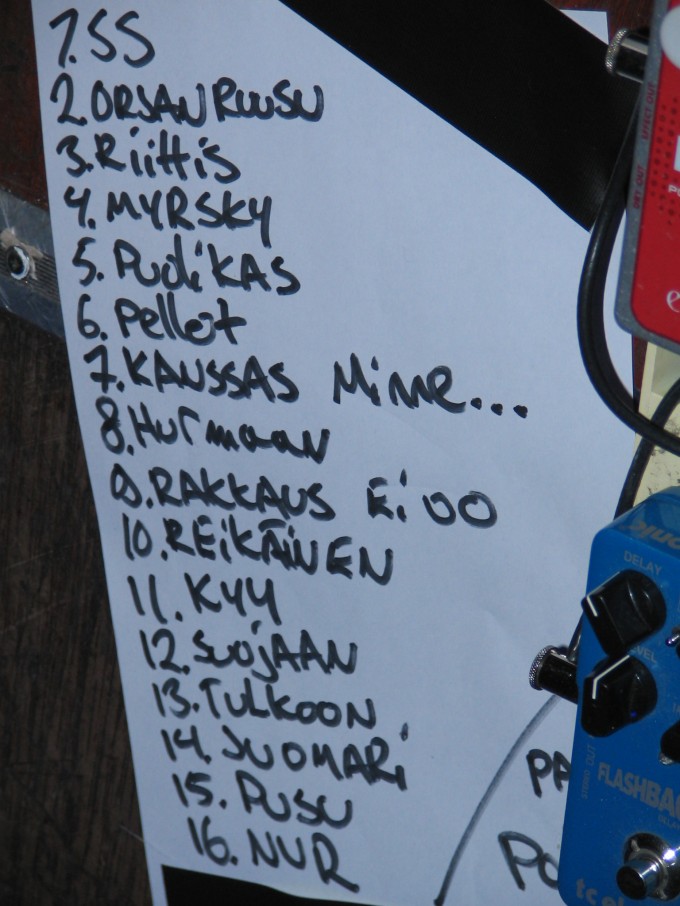 1. SS
2. ORJAN RUUSU
3. Riittis
4. MYRSKY
5. PudikAS
6. Pellot
7. KANSSAS MiNNe...
8. Hurmaan
9. RAKKAUS Ei OO
10. REiKÄiNEN
11. KYY
12. SuojAAN
13. TULKOON
14. SUOMARi
15. PUSU
16. NUR
PA
PO
DRY OUT
EFFECT OUT
DELAY
STEREO OUT
FLASHBA
tc el